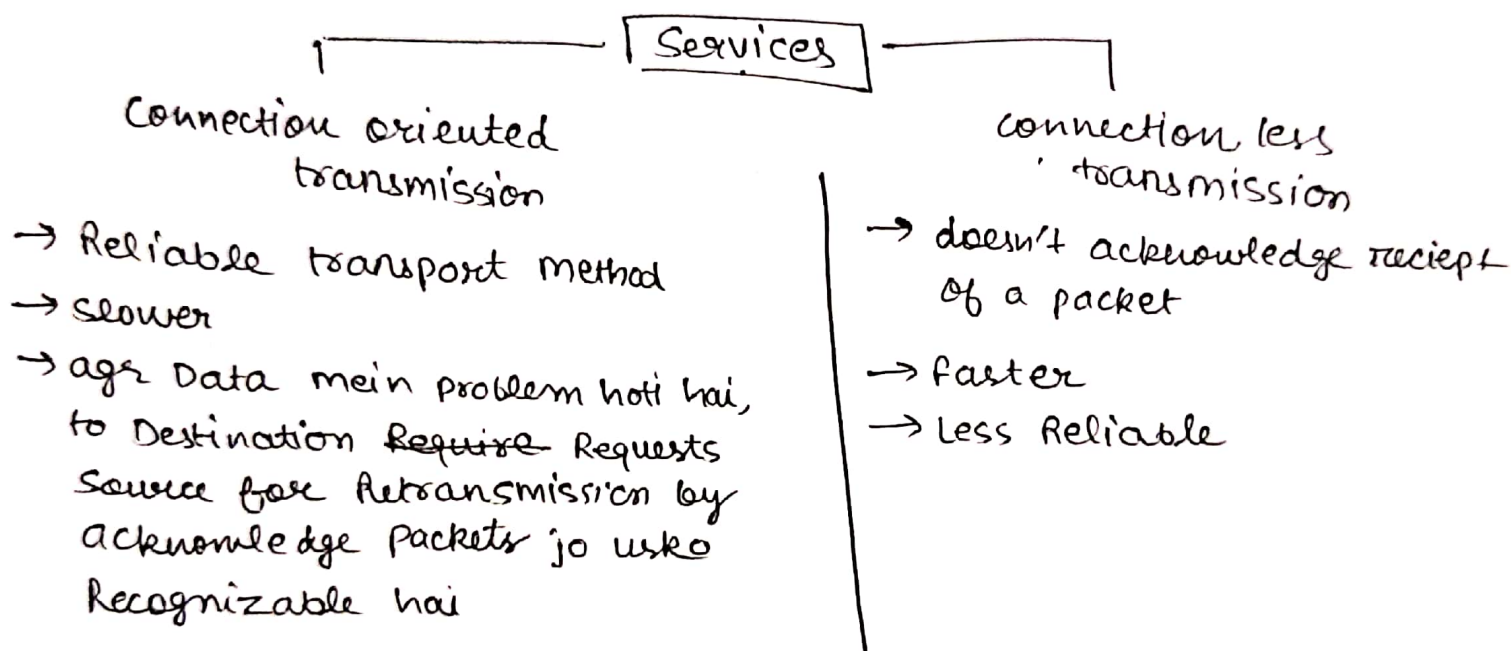 Services
Connection oriented
transmission
→ Reliable transport method
→ slower
→ agr Data mein problem hoti hai,
to Destination ~~Require~~ Requests
Source for Retransmission by
acknowledge packets jo usko
Recognizable hai
connection less
transmission
→ doesn't acknowledge reciept
of a packet
→ faster
→ Less Reliable